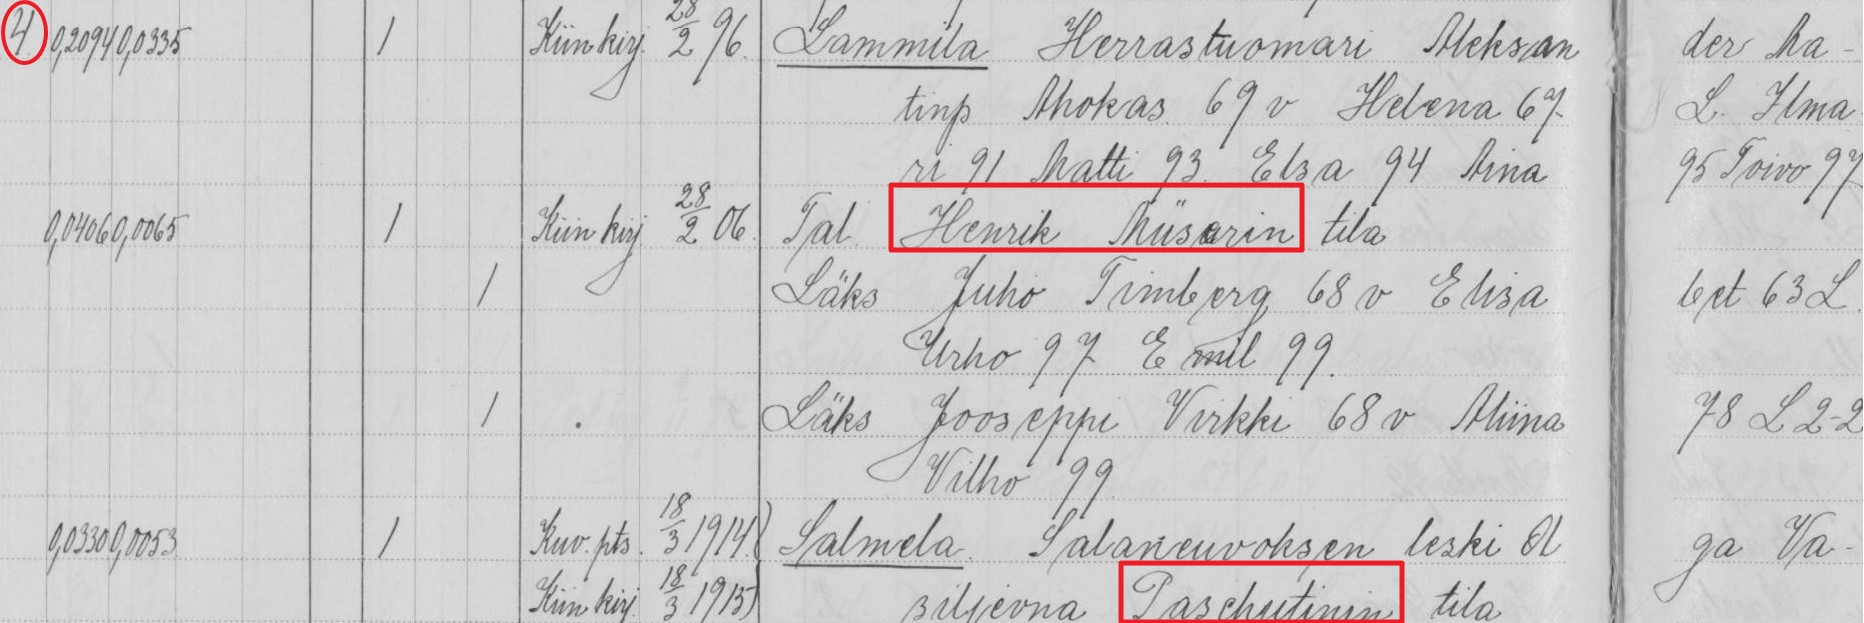 4 0,2094 0,0335 1 Kiinkirj. 28/2 96. Lammila Herrastuomari Aleksan der Ma-
tinp Ahokas 69 v Helena 67 L. Ilma-
ri 91 Matti 93 Elsa 94 Aina 95 Toivo 97
0,0406 0,0065 1 Kiinkirj 28/2 06. Tal. Henrik Müsarin tila
1 Läks Juho Timberg 68 v Elisa bet 63 L.
Urho 97 Emil 99.
1 Läks Jooseppi Virkki 68 v Aliina 78 L 2-2
Vilho 99
0,0330 0,0053 1 Kuv. pts. 18/3 1914 Salmela. Salaneuvoksen leski Ol ga Va-
Kiinkirj. 18/3 1915 siljevna tila